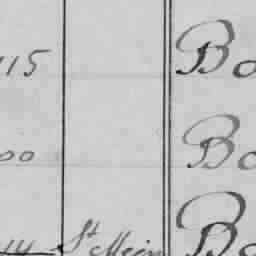 115 Bo
00 Bo
14 St Mein Bo